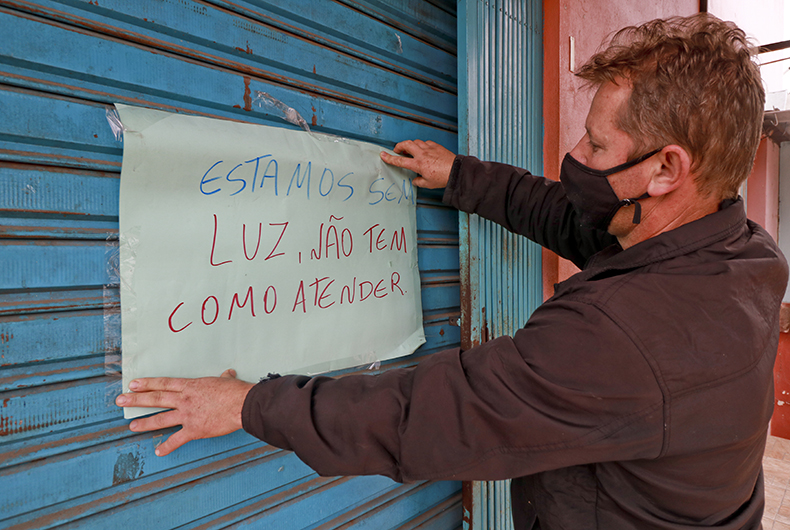 ESTAMOS SEM
LUZ, NÃO TEM
COMO ATENDER.